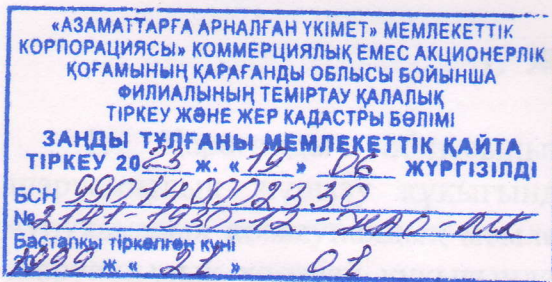 «АЗАМАТТАРҒА АРНАЛҒАН ҮКІМЕТ» МЕМЛЕКЕТТІК
КОРПОРАЦИЯСЫ» КОММЕРЦИЯЛЫҚ ЕМЕС АКЦИОНЕРЛІК
ҚОҒАМЫНЫҢ ҚАРАҒАНДЫ ОБЛЫСЫ БОЙЫНША
ФИЛИАЛЫНЫҢ ТЕМІРТАУ ҚАЛАЛЫҚ
ТІРКЕУ ЖӘНЕ ЖЕР КАДАСТРЫ БӨЛІМІ
ЗАҢДЫ ТҰЛҒАНЫ МЕМЛЕКЕТТІК ҚАЙТА
ТІРКЕУ 2023 ж. «19» 06 ЖҮРГІЗІЛДІ
БСН 990140002330
№2141-1930-12-НАО-МК
Бастапқы тіркелген күні
1999 ж. «21» 01